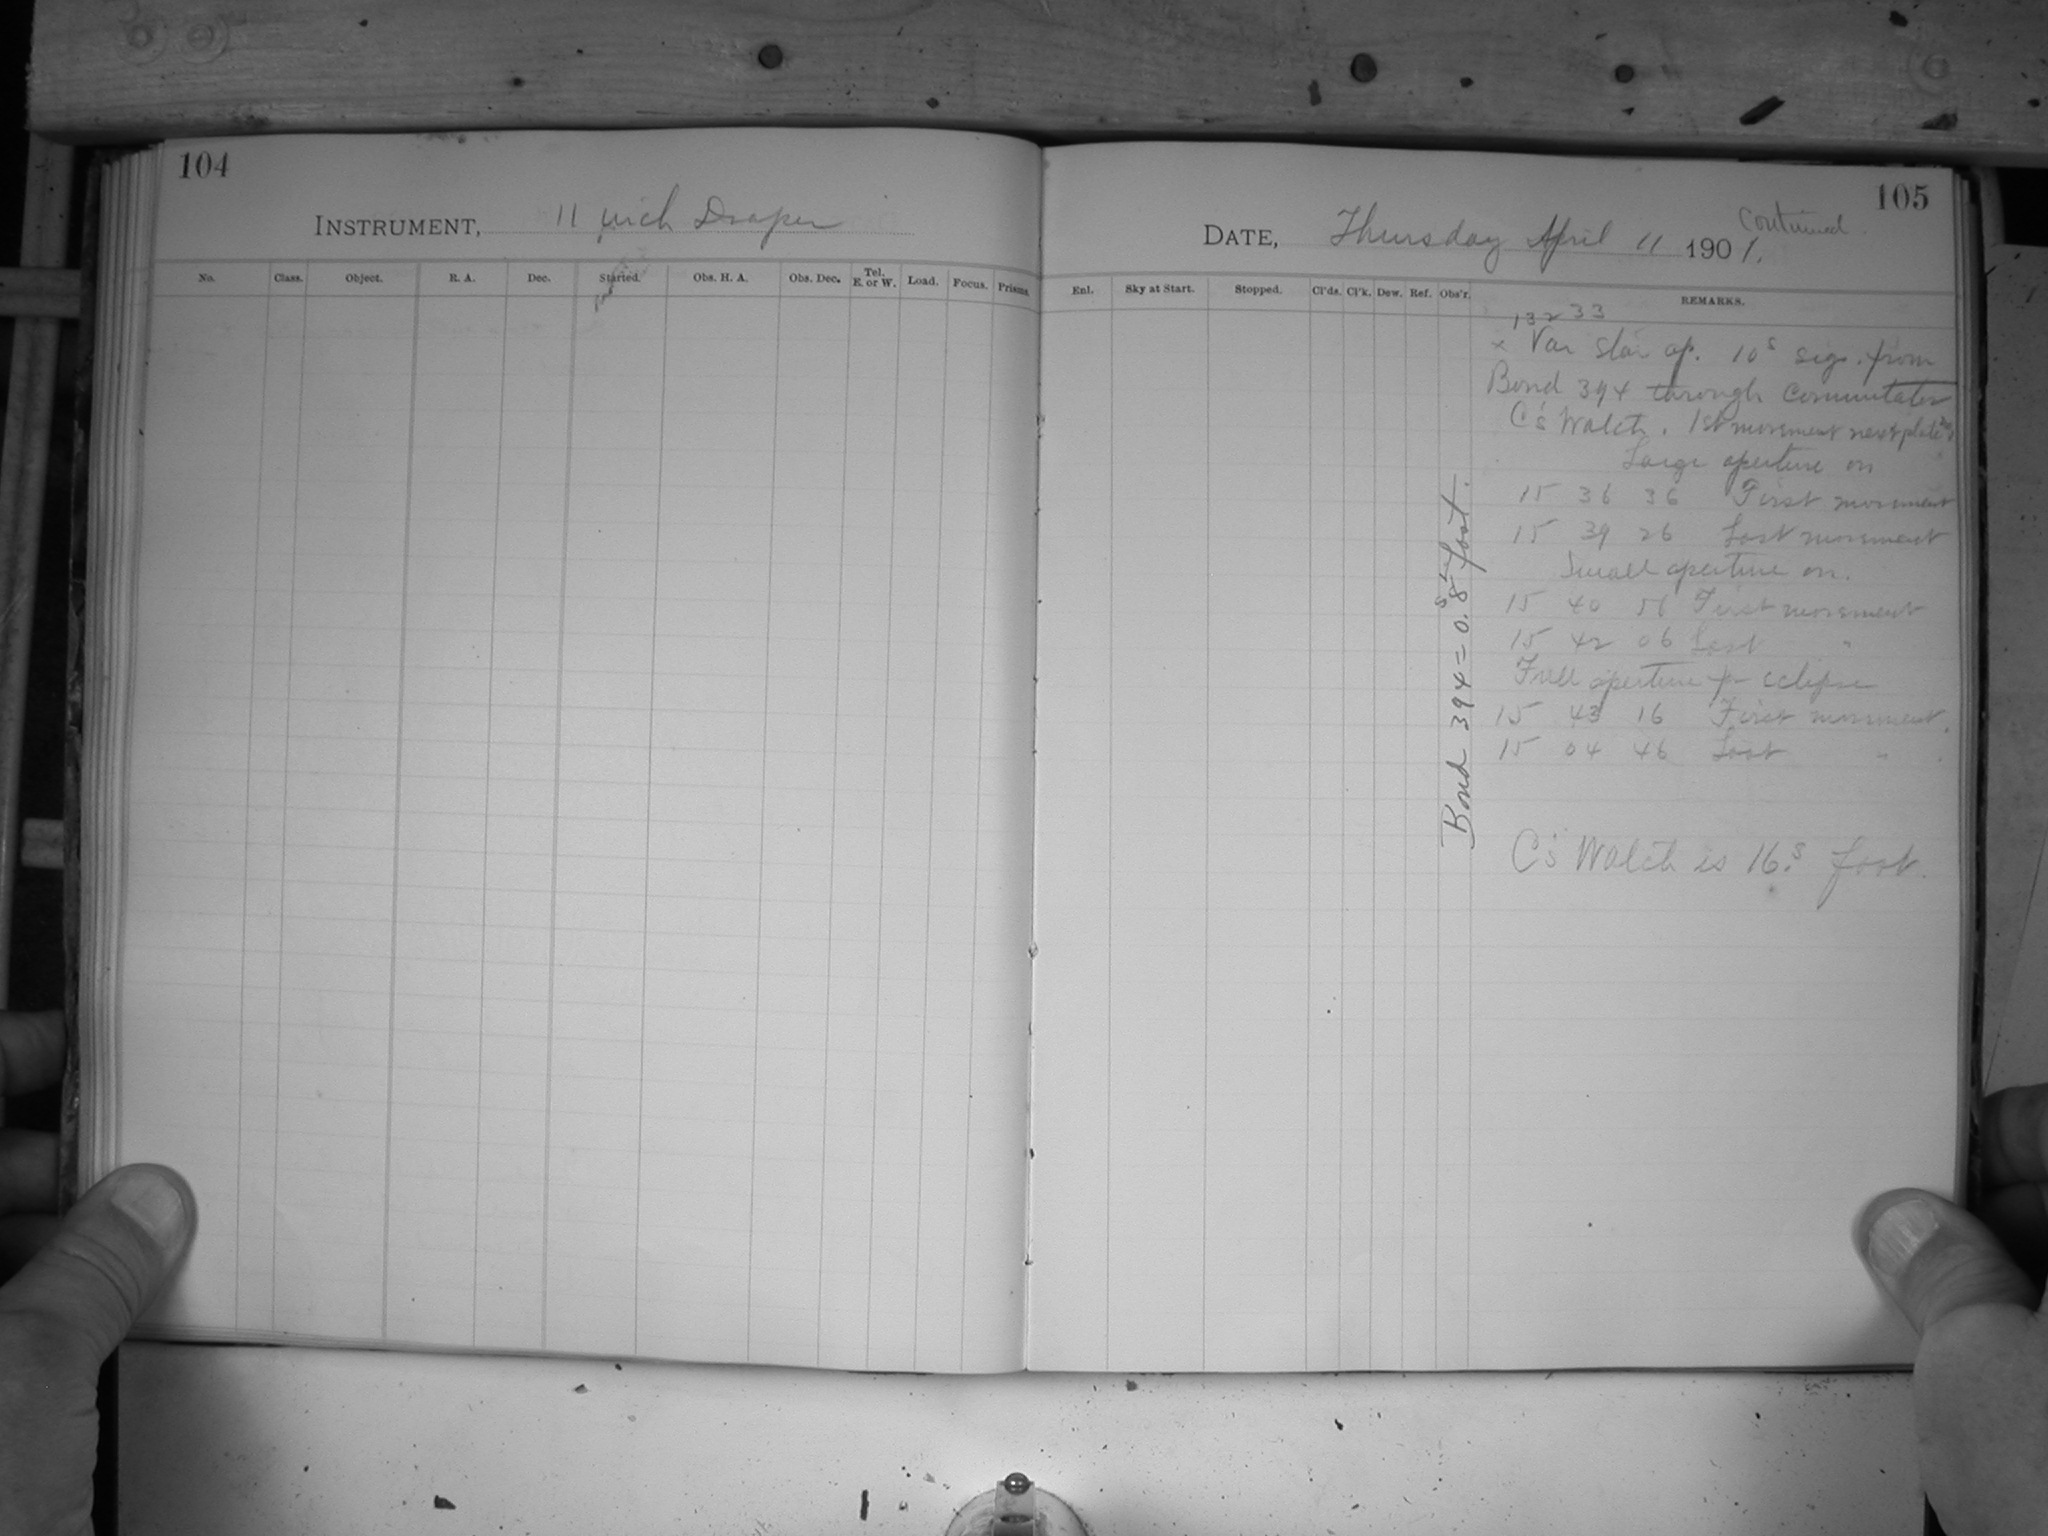 104
INSTRUMENT, 11 inch Draper
No. Class. Object. R. A. Dec. Started. Obs. H. A. Obs. Dec. Tel. E. or W. Load. Focus. Prisms.
105
DATE, Thursday April 11 1901. Continued
Enl. Sky at Start. Stopped. Cl'ds. Cl'k. Dew. Ref. Obs'r. REMARKS.
13233
x Var star ap. 10s sigs. from
Bond 394 through Commutator
C's Watch. 1st movement next plate
Large aperture on
15 36 36 First movement
15 39 26 Last movement
Small aperture on.
15 40 56 First movement
15 42 06 Last "
Full aperture for eclipse
15 43 16 First movement.
15 04 46 Last "
C's Watch is 16.s fast.
Bond 394 = 0.s8 fast.